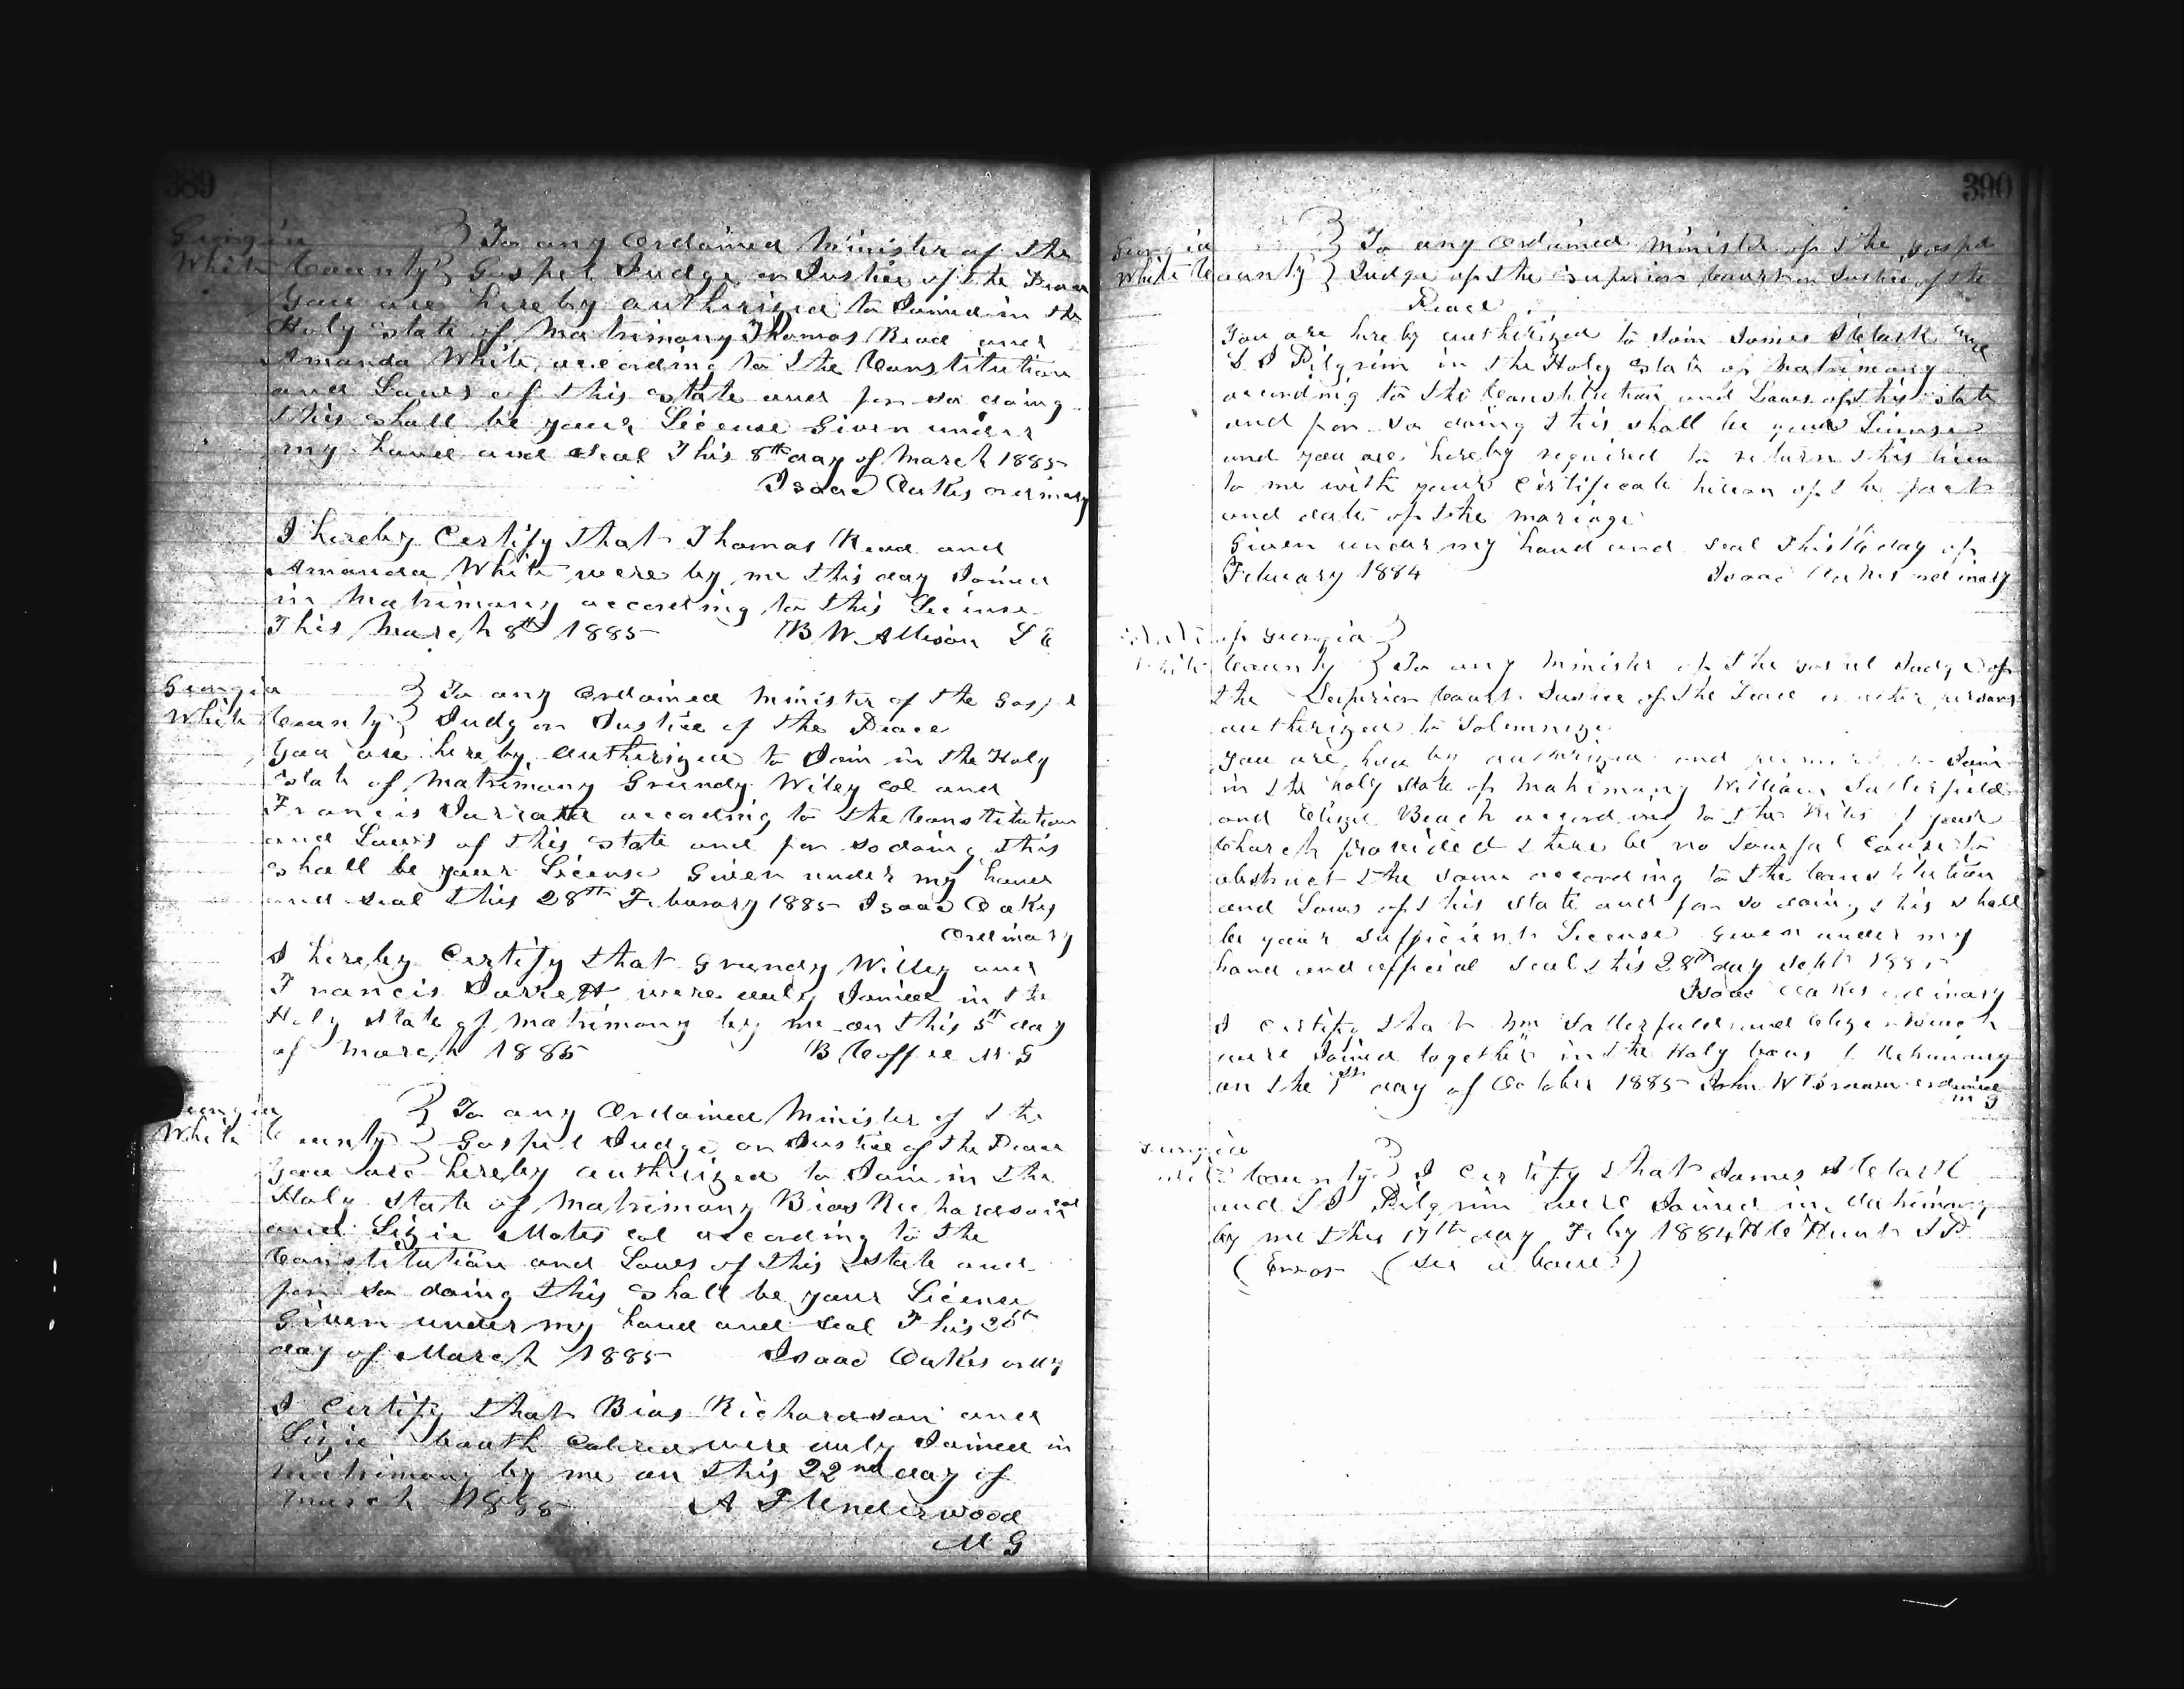 389
Georgia } To any Ordained Minister of the
White County } Gospel Judge or Justice of the Peace
You are hereby authirized to Joined in the
Holy State of Matrimony Thomas Read and
Amanda White according to the Constitution
and Laws of this State and for so doing
this shall be your License Given under
my hand and seal This 8th day of March 1885
Isaac Oakes ordinary
I hereby Certify that Thomas Read and
Amanda White were by me this day Joined
in Matrimony according to this License
This March 8th 1885 B W Allison
Georgia } To any Ordained Minister of the Gospel
White County } Judg or Justice of the Peace
You are hereby authirized to Join in the Holy
State of Matrimony Grundy Wiley col and
Francis Jarratt according to the Constitution
and Laws of this State and for so doing this
shall be your License Given under my hand
and seal this 28th Febuary 1885 Isaac Oakes
Ordinary
I hereby Certify that Grundy Willey and
Francis Jarrett were duly Joined in the
Holy State of Matrimony by me on this 5th day
of March 1885 B Coffee M G
Georgia } To any Ordained Minister of the
White County } Gospel Judge or Justice of the Peace
You are hereby authirized to Join in the
Holy State of Matrimony Bias Richardson col
and Lizie Motes col according to the
Constitution and Laws of this State and
for so doing this shall be your License
Given under my hand and seal This
day of March 1885 Isaac Oakes ordy
I Certify that Bias Richardson and
Lizie were duly Joined in
Matrimony by me on this 22nd day of
March 1885 A F Underwood
M G
390
Georgia } To any ordained Minister of the Gospel
White County } Judge of the Superior Court or Justice of the
Peace
You are hereby authirized to Join James Clark and
L J Pilgrim in the Holy State of Matrimony
according to the Constitution and Laws of this State
and for so doing this shall be your License
and you are hereby required to return this licen
to me with your Certificate hereon of the fact
and date of the mariage
Given under my hand and seal this 16 day of
February 1884 Isaac Oakes ordinary
State of Georgia }
White County } To any Minister of the Gospel Judge of
the Superior Court Justice of the Peace or other persons
authirized to Solemnize
You are hereby authirized and to Join
in the Holy State of Matrimony William Satterfield
and Eliza Beach according to the Rites of your
Church provided there be no Lawful Cause to
obstruct the same according to the Constitution
and Laws of this State and for so doing this shall
be your Sufficient License Given under my
hand and official seal this 28th day Sept 1885
Isaac Oakes ordinary
I certify that Wm Satterfield and Eliza
were Joined together in the Holy bans of Matrimony
on the 1st day of October 1885 John W ordained
M G
Georgia
White County } I Certify that James Clark
and L J Pilgrim were Joined in Matrimony
by me this 17th day Feby 1884 H C Hunt J P
(Error (see above)